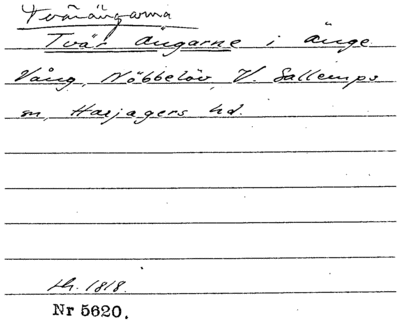 Tvärängarna
Tvär ängarne i änge
Vång, Nöbbelöv, V. Sallerups
sn, Harjagers hd.
Lh. 1818.
Nr 5620.